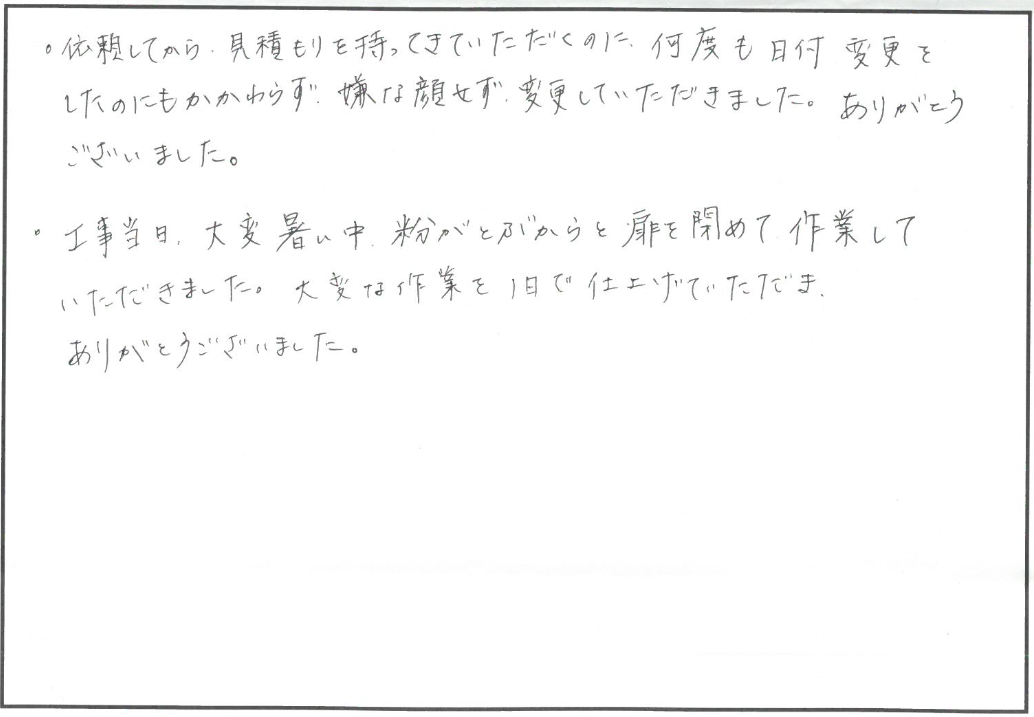 。依頼してから、見積もりを持ってきていただくのに、何度も日付変更を
したのにもかかわらず、嫌な顔せず、変更していただきました。ありがとう
ございました。
。工事当日、大変暑い中、粉がとぶからと扉を閉めて作業して
いただきました。大変な作業を1日で仕上げていただだき、
ありがとうございました。